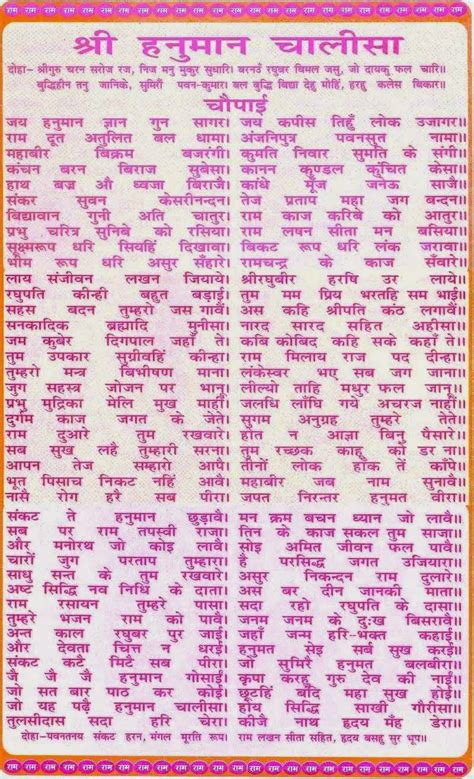 श्री हनुमान चालीसा
दोहा- श्रीगुरु चरन सरोज रज, निज मनु मुकुर सुधारि। बरनउँ रघुबर बिमल जसु, जो दायकु फल चारि॥
बुद्धिहीन तनु जानिके, सुमिरौं पवन-कुमार। बल बुद्धि बिद्या देहु मोहिं, हरहु कलेस बिकार॥
चौपाई
जय हनुमान ज्ञान गुन सागर। जय कपीस तिहुँ लोक उजागर॥
राम दूत अतुलित बल धामा। अंजनिपुत्र पवनसुत नामा॥
महाबीर बिक्रम बजरंगी। कुमति निवार सुमति के संगी॥
कंचन बरन बिराज सुबेसा। कानन कुण्डल कुंचित केसा॥
हाथ बज्र औ ध्वजा बिराजै। काँधे मूँज जनेऊ साजै॥
संकर सुवन केसरीनन्दन। तेज प्रताप महा जग बन्दन॥
विद्यावान गुनी अति चातुर। राम काज करिबे को आतुर॥
प्रभु चरित्र सुनिबे को रसिया। राम लषन सीता मन बसिया॥
सूक्ष्मरूप धरि सियहिं दिखावा। बिकट रूप धरि लंक जरावा॥
भीम रूप धरि असुर सँहारे। रामचन्द्र के काज सँवारे॥
लाय संजीवन लखन जियाये। श्रीरघुबीर हरषि उर लाये॥
रघुपति कीन्ही बहुत बड़ाई। तुम मम प्रिय भरतहि सम भाई॥
सहस बदन तुम्हरो जस गावैं। अस कहि श्रीपति कंठ लगावैं॥
सनकादिक ब्रह्मादि मुनीसा। नारद सारद सहित अहीसा॥
जम कुबेर दिगपाल जहाँ ते। कबि कोबिद कहि सके कहाँ ते॥
तुम उपकार सुग्रीवहिं कीन्हा। राम मिलाय राज पद दीन्हा॥
तुम्हरो मन्त्र बिभीषण माना। लंकेस्वर भए सब जग जाना॥
जुग सहस्त्र जोजन पर भानू। लील्यो ताहि मधुर फल जानू॥
प्रभु मुद्रिका मेलि मुख माहीं। जलधि लाँघि गये अचरज नाहीं॥
दुर्गम काज जगत के जेते। सुगम अनुग्रह तुम्हरे तेते॥
राम दुआरे तुम रखवारे। होत न आज्ञा बिनु पैसारे॥
सब सुख लहै तुम्हारी सरना। तुम रच्छक काहू को डर ना॥
आपन तेज सम्हारो आपै। तीनों लोक हाँक तें काँपै॥
भूत पिसाच निकट नहिं आवै। महाबीर जब नाम सुनावै॥
नासै रोग हरै सब पीरा। जपत निरन्तर हनुमत वीरा॥
संकट ते हनुमान छुड़ावै। मन क्रम बचन ध्यान जो लावै॥
सब पर राम तपस्वी राजा। तिन के काज सकल तुम साजा॥
और मनोरथ जो कोई लावै। सोइ अमित जीवन फल पावै॥
चारों जुग परताप तुम्हारा। है परसिद्ध जगत उजियारा॥
साधु सन्त के तुम रखवारे। असुर निकन्दन राम दुलारे॥
अष्ट सिद्धि नव निधि के दाता। अस बर दीन जानकी माता॥
राम रसायन तुम्हरे पासा। सदा रहो रघुपति के दासा॥
तुम्हरे भजन राम को पावै। जनम जनम के दुःख बिसरावै॥
अन्त काल रघुबर पुर जाई। जहाँ जन्म हरि-भक्त कहाई॥
और देवता चित्त न धरई। हनुमत सेइ सर्ब सुख करई॥
संकट कटै मिटै सब पीरा। जो सुमिरै हनुमत बलबीरा॥
जै जै जै हनुमान गोसाईं। कृपा करहु गुरु देव की नाईं॥
जो सत बार पाठ कर कोई। छूटहिं बंदि महा सुख होई॥
जो यह पढ़ै हनुमान चालीसा। होय सिद्धि साखी गौरीसा॥
तुलसीदास सदा हरि चेरा। कीजै नाथ हृदय मँह डेरा॥
दोहा-पवनतनय संकट हरन, मंगल मूरति रूप। राम लखन सीता सहित, हृदय बसहु सुर भूप॥